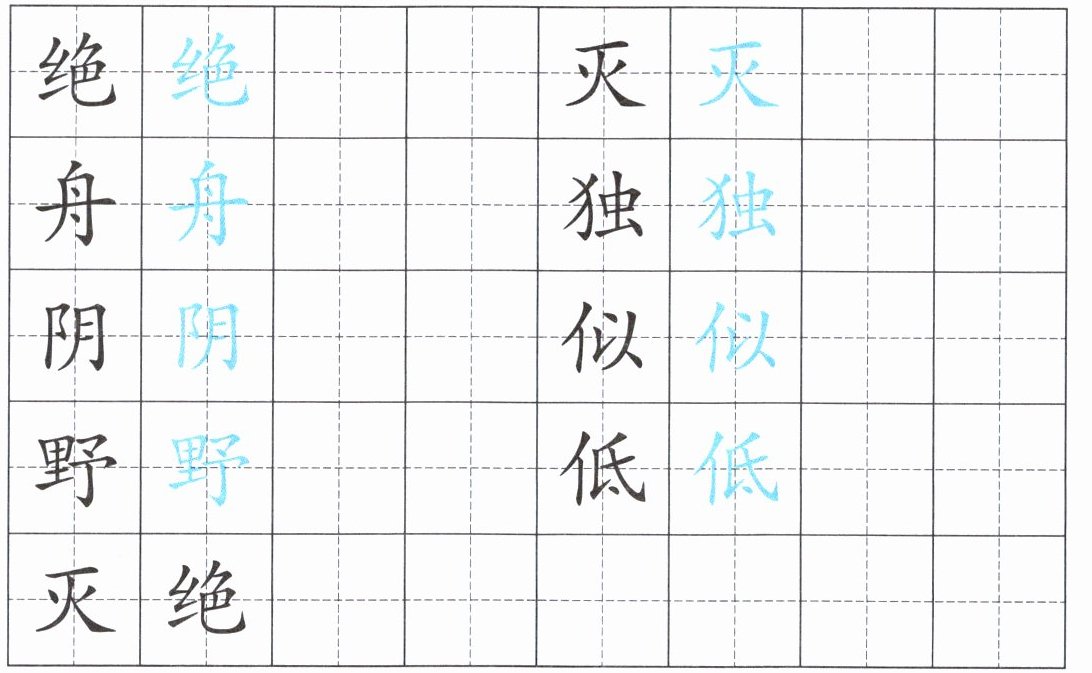 绝 绝 灭 灭
舟 舟 独 独
阴 阴 似 似
野 野 低 低
灭 绝